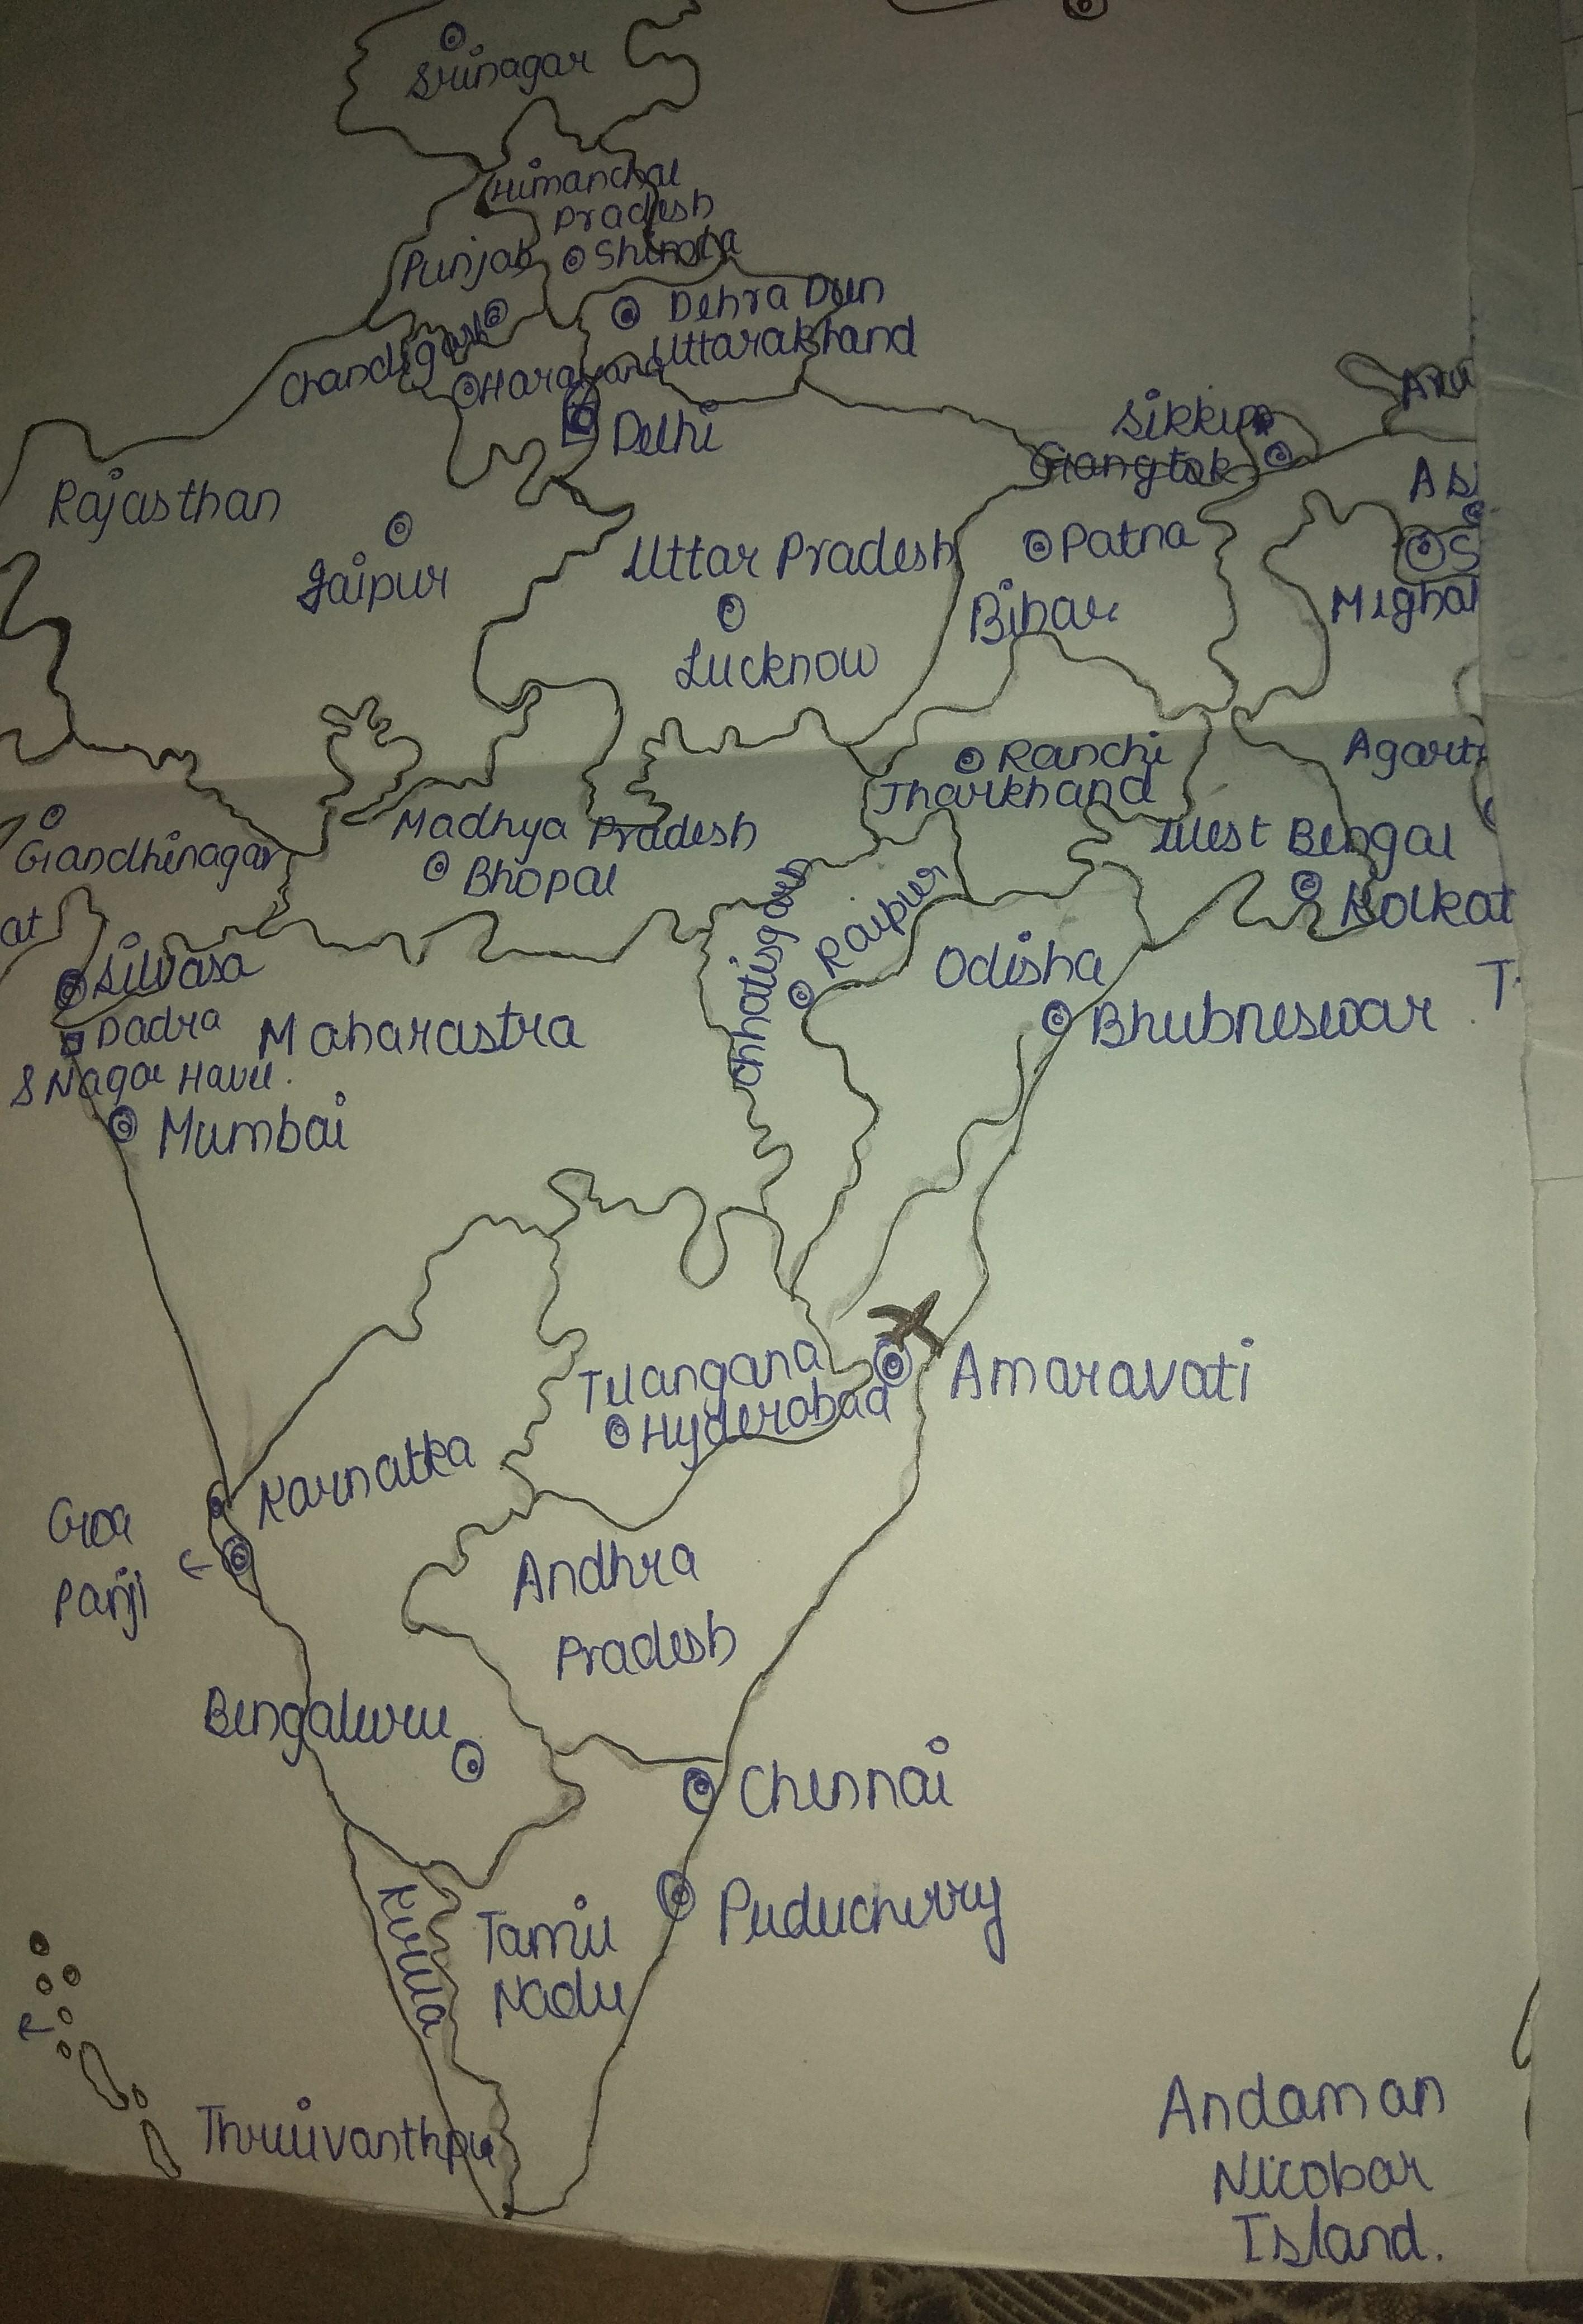 Srinagar
Himanchal
Pradesh
Punjab
Shimla
Dehra Dun
Uttarakhand
Chandigarh
Harayana
Delhi
Sikkim
Gangtok
Aru
Rajasthan
Jaipur
Uttar Pradesh
Lucknow
Patna
Bihar
As
S
Mighal
Ranchi
Jharkhand
Agart
Gandhinagar
at
Madhya Pradesh
Bhopal
West Bengal
Kolkat
Chhatisgarh
Raipur
Odisha
Bhubneswar
T
Silvasa
Dadra
& Nagar Haveli.
Maharastra
Mumbai
Telangana
Hyderabad
Amaravati
Karnatka
Goa
Panji
Andhra
Pradesh
Bengaluru
Chennai
Puducherry
Kerela
Tamil
Nadu
Andaman
Nicobar
Island.